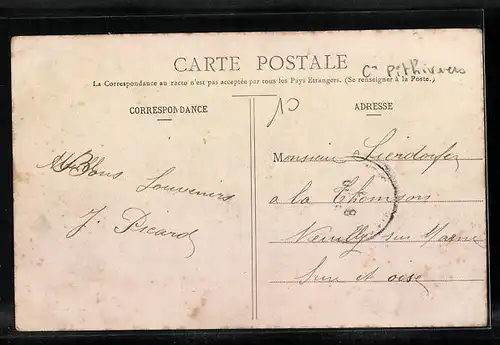 CARTE POSTALE
Cⁿ Pithiviers
La Correspondance au recto n'est pas acceptée par tous les Pays Etrangers. (Se renseigner à la Poste.)
CORRESPONDANCE
ADRESSE
10
Bons Souvenirs
J. Picard
Monsieur
a la
Neuilly sur Marne
Seine et oise